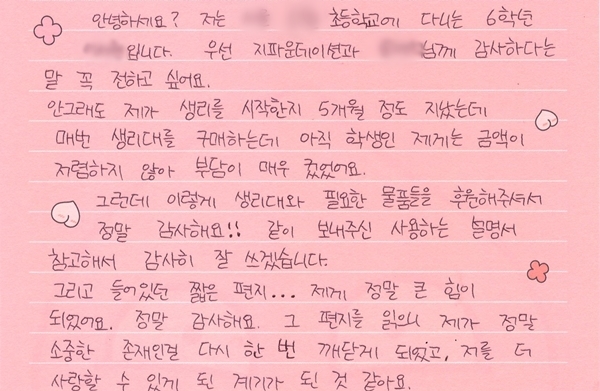 안녕하세요? 저는 초등학교에 다니는 6학년
입니다. 우선 지파운데이션과 님께 감사하다는
말 꼭 전하고 싶어요.
안그래도 제가 생리를 시작한지 5개월 정도 지났는데
매번 생리대를 구매하는데 아직 학생인 제게는 금액이
저렴하지 않아 부담이 매우 컸었어요.
그런데 이렇게 생리대와 필요한 물품들을 후원해주셔서
정말 감사해요!! 같이 보내주신 사용하는 설명서
참고해서 감사히 잘 쓰겠습니다.
그리고 들어있던 짧은 편지... 제게 정말 큰 힘이
되었어요. 정말 감사해요. 그 편지를 읽으니 제가 정말
소중한 존재인걸 다시 한 번 깨닫게 되었고, 저를 더
사랑할 수 있게 된 계기가 된 것 같아요.